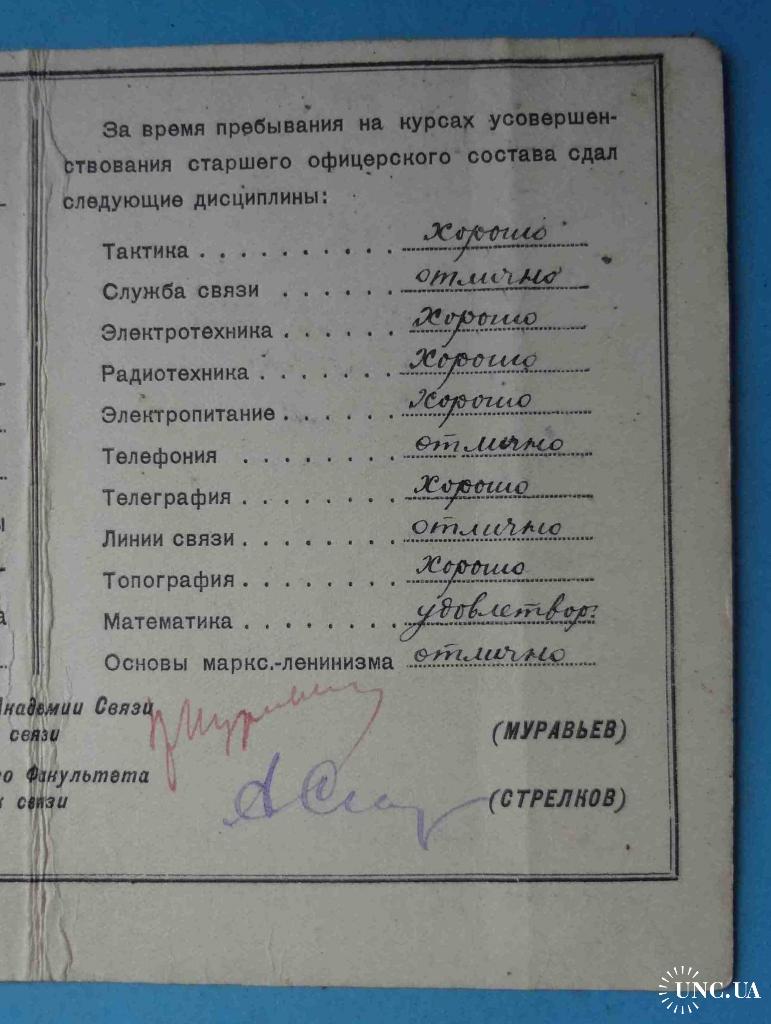 За время пребывания на курсах усовершен-
ствования старшего офицерского состава сдал
следующие дисциплины:
Тактика . . . . . . . . . . хорошо
Служба связи . . . . . . . отлично
Электротехника . . . . . . . хорошо
Радиотехника . . . . . . . . хорошо
Электропитание . . . . . . . хорошо
Телефония . . . . . . . . отлично
Телеграфия . . . . . . . . хорошо
Линии связи . . . . . . . . отлично
Топография . . . . . . . . хорошо
Математика . . . . . . . . удовлетвор.
Основы маркс.-ленинизма отлично
Академии Связи
связи (МУРАВЬЕВ)
Факультета
связи (СТРЕЛКОВ)
UNC.UA